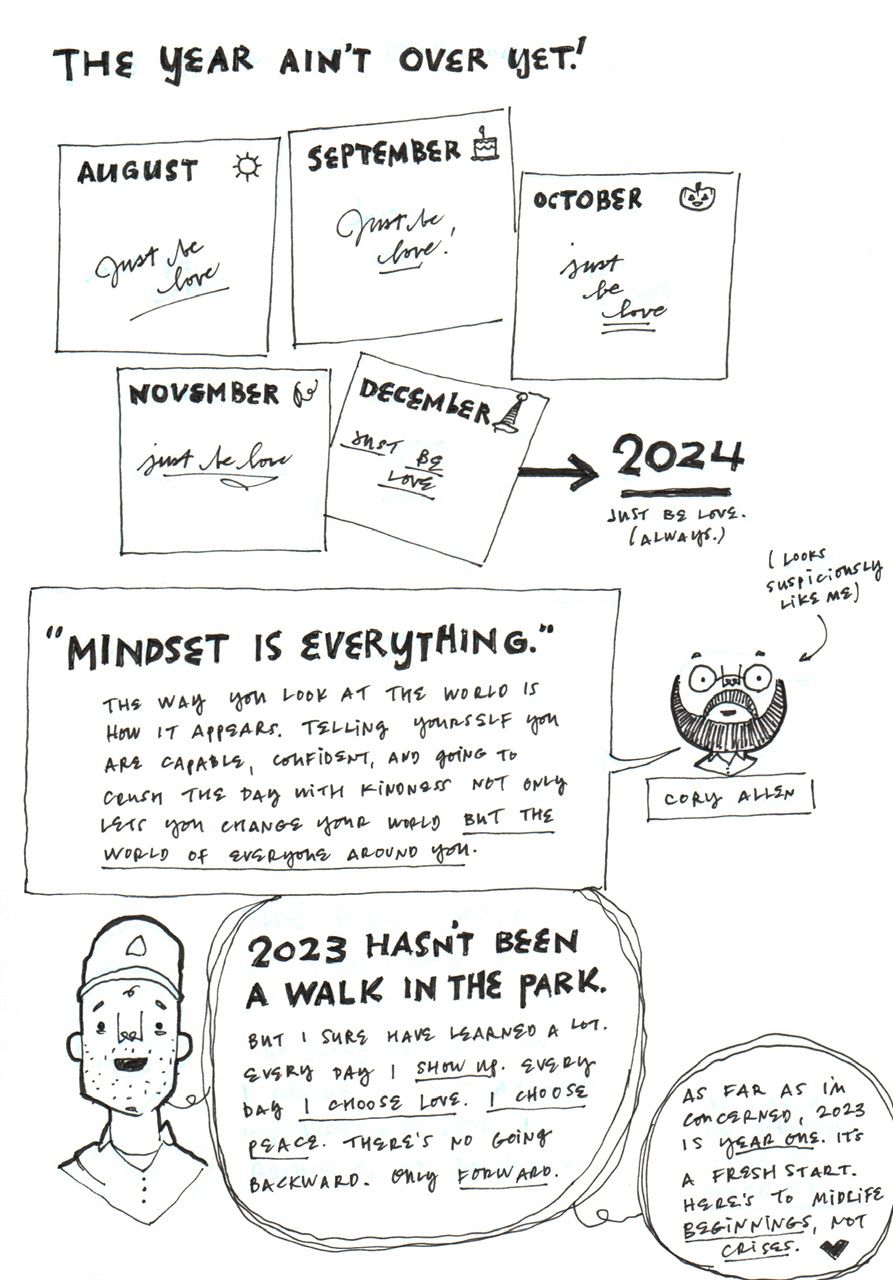 THE YEAR AIN'T OVER YET!
AUGUST
Just be
love
SEPTEMBER
Just be
love!
OCTOBER
just
be
love
NOVEMBER
just be love
DECEMBER
JUST
BE
LOVE
2024
JUST BE LOVE.
(ALWAYS.)
(LOOKS
SUSPICIOUSLY
LIKE ME)
"MINDSET IS EVERYTHING."
THE WAY YOU LOOK AT THE WORLD IS
HOW IT APPEARS. TELLING YOURSELF YOU
ARE CAPABLE, CONFIDENT, AND GOING TO
CRUSH THE DAY WITH KINDNESS NOT ONLY
LETS YOU CHANGE YOUR WORLD BUT THE
WORLD OF EVERYONE AROUND YOU.
CORY ALLEN
2023 HASN'T BEEN
A WALK IN THE PARK.
BUT I SURE HAVE LEARNED A LOT.
EVERY DAY I SHOW UP. EVERY
DAY I CHOOSE LOVE. I CHOOSE
PEACE. THERE'S NO GOING
BACKWARD. ONLY FORWARD.
AS FAR AS I'M
CONCERNED, 2023
IS YEAR ONE. IT'S
A FRESH START.
HERE'S TO MIDLIFE
BEGINNINGS, NOT
CRISES.